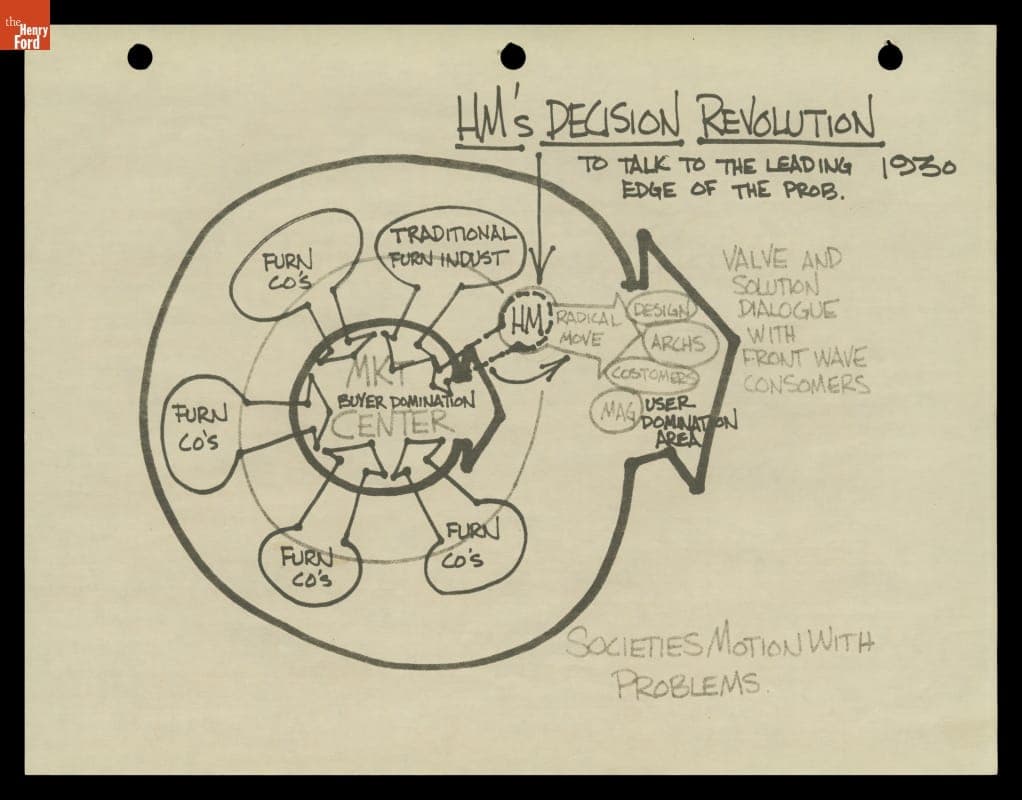 the
Henry
Ford
HM's DECISION REVOLUTION
TO TALK TO THE LEADING 1930
EDGE OF THE PROB.
TRADITIONAL
FURN INDUST
FURN
CO'S
HM
RADICAL
MOVE
DESIGN
ARCHS
COSTOMERS
MAG
USER
DOMINATION
AREA
VALVE AND
SOLUTION
DIALOGUE
WITH
FRONT WAVE
CONSOMERS
MKT
BUYER DOMINATION
CENTER
FURN
CO'S
FURN
CO'S
FURN
CO'S
SOCIETIES MOTION WITH
PROBLEMS.